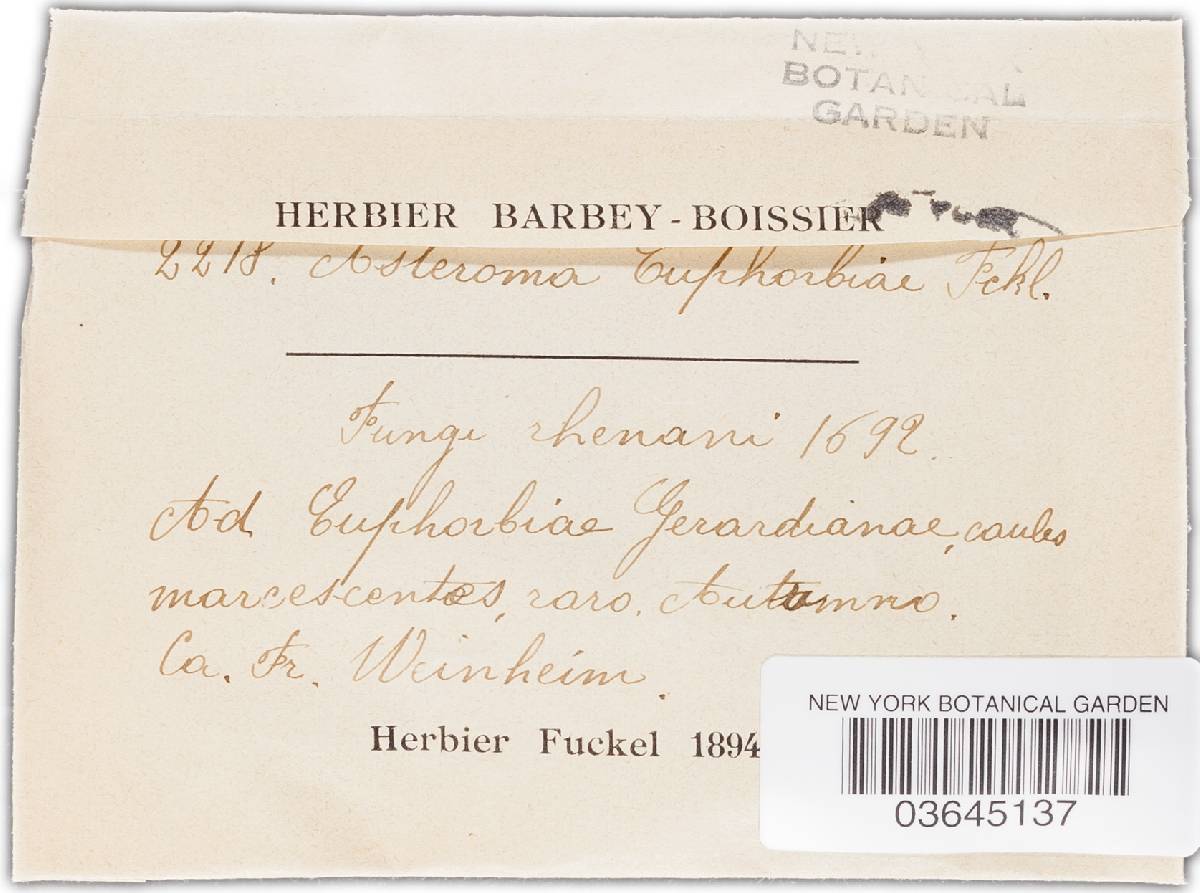 NEW
BOTANICAL
GARDEN
HERBIER BARBEY-BOISSIER
2218. Asteroma Euphorbiae Fckl.
Fungi rhenani 1692.
Ad Euphorbiae Gerardianae, caules
marcescentes, raro. Autumno.
Ca. Fr. Weinheim.
Herbier Fuckel 1894
NEW YORK BOTANICAL GARDEN
03645137